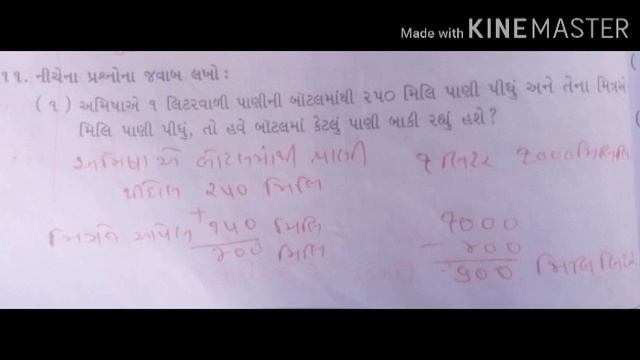 Made with KINEMASTER
૧૧. નીચેના પ્રશ્નોના જવાબ લખો :
(૧) અમિષાએ ૧ લિટરવાળી પાણીની બૉટલમાંથી ૨૫૦ મિલિ પાણી પીધું અને તેના મિત્રએ
મિલિ પાણી પીધું, તો હવે બૉટલમાં કેટલું પાણી બાકી રહ્યું હશે?
અમિષા એ બોટલમાંથી પાણી ૧ લિટર ૧૦૦૦ મિલિ
પીધેલ ૨૫૦ મિલિ
મિત્રને આપેલ + ૧૫૦ મિલિ ૧૦૦૦
૪૦૦ મિલિ - ૪૦૦
૬૦૦ મિલિ લિટર